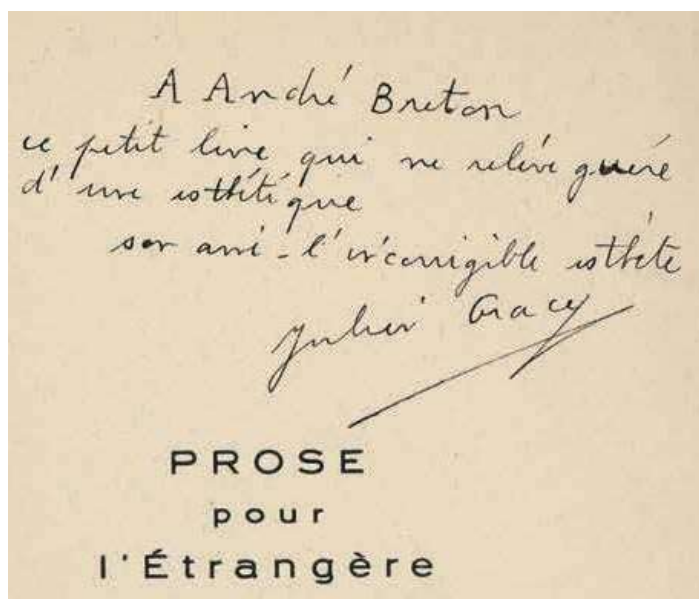 A André Breton
ce petit livre qui ne relève guère
d'une esthétique
son ami - l'incorrigible esthète
Julien Gracq
PROSE
pour
l'Étrangère